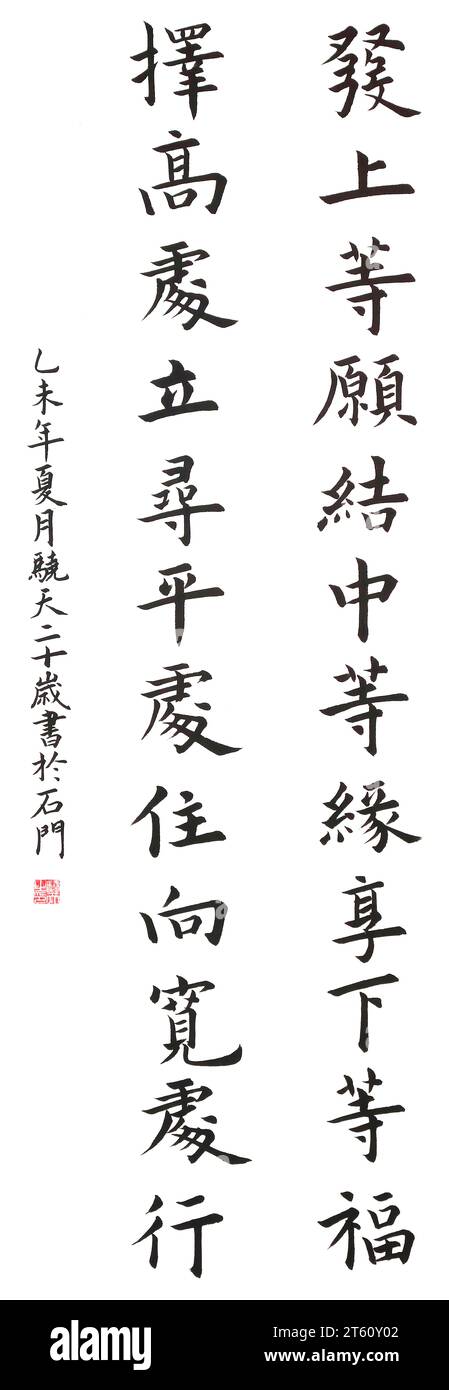 發上等願結中等緣享下等福
擇髙處立尋平處住向寬處行
乙未年夏月驍天二十歲書於石門
alamy
Image ID: 2T60Y02
www.alamy.com